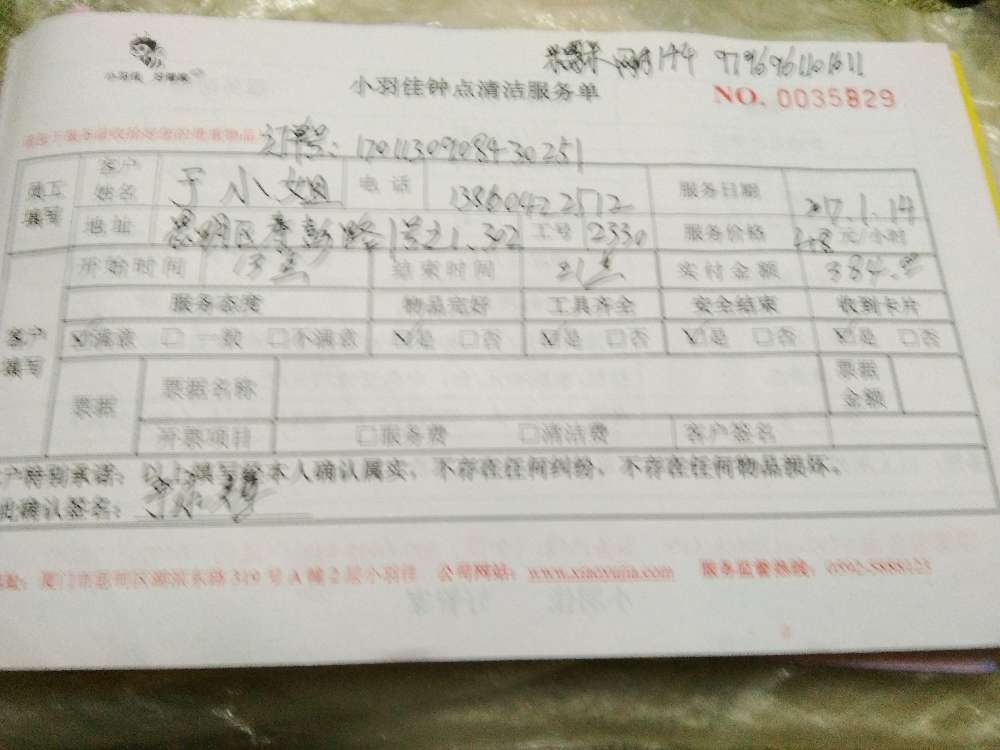 小羽佳 好管家
97196961101611
小羽佳钟点清洁服务单
NO. 0035829
订单号: 1201130908430251
员工填写 客户姓名 于小姐 电话 13860422512 服务日期 2017.1.14
地址 302 工号 2330 服务价格 48元/小时
开始时间 13点 结束时间 21点 实付金额 384元
客户填写 服务态度 物品完好 工具齐全 安全结束 收到卡片
☑满意 □一般 □不满意 ☑是 □否 ☑是 □否 ☑是 □否 ☑是 □否
票据 票据名称 票据金额
开票项目 □服务费 □清洁费 客户签名
客户特别承诺：以上填写经本人确认属实，不存在任何纠纷，不存在任何物品损坏。
此确认签名：
厦门市思明区湖滨东路319号A幢2层小羽佳 公司网站：www.xiaoyujia.com 服务监督热线：0592-5888123